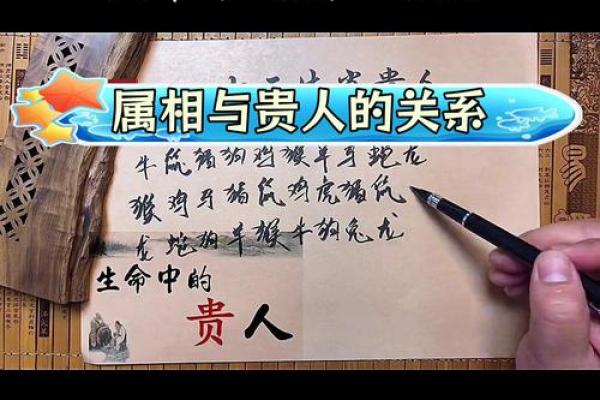 属相与贵人的关系
牛鼠猪狗鸡猴羊马蛇龙
猴鸡马猪鼠鸡虎猪鼠
龙蛇狗羊猴牛狗兔龙
生命中的
贵人
易